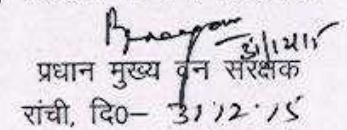 31/12/15
प्रधान मुख्य वन संरक्षक
रांची, दि०– 31.12.15